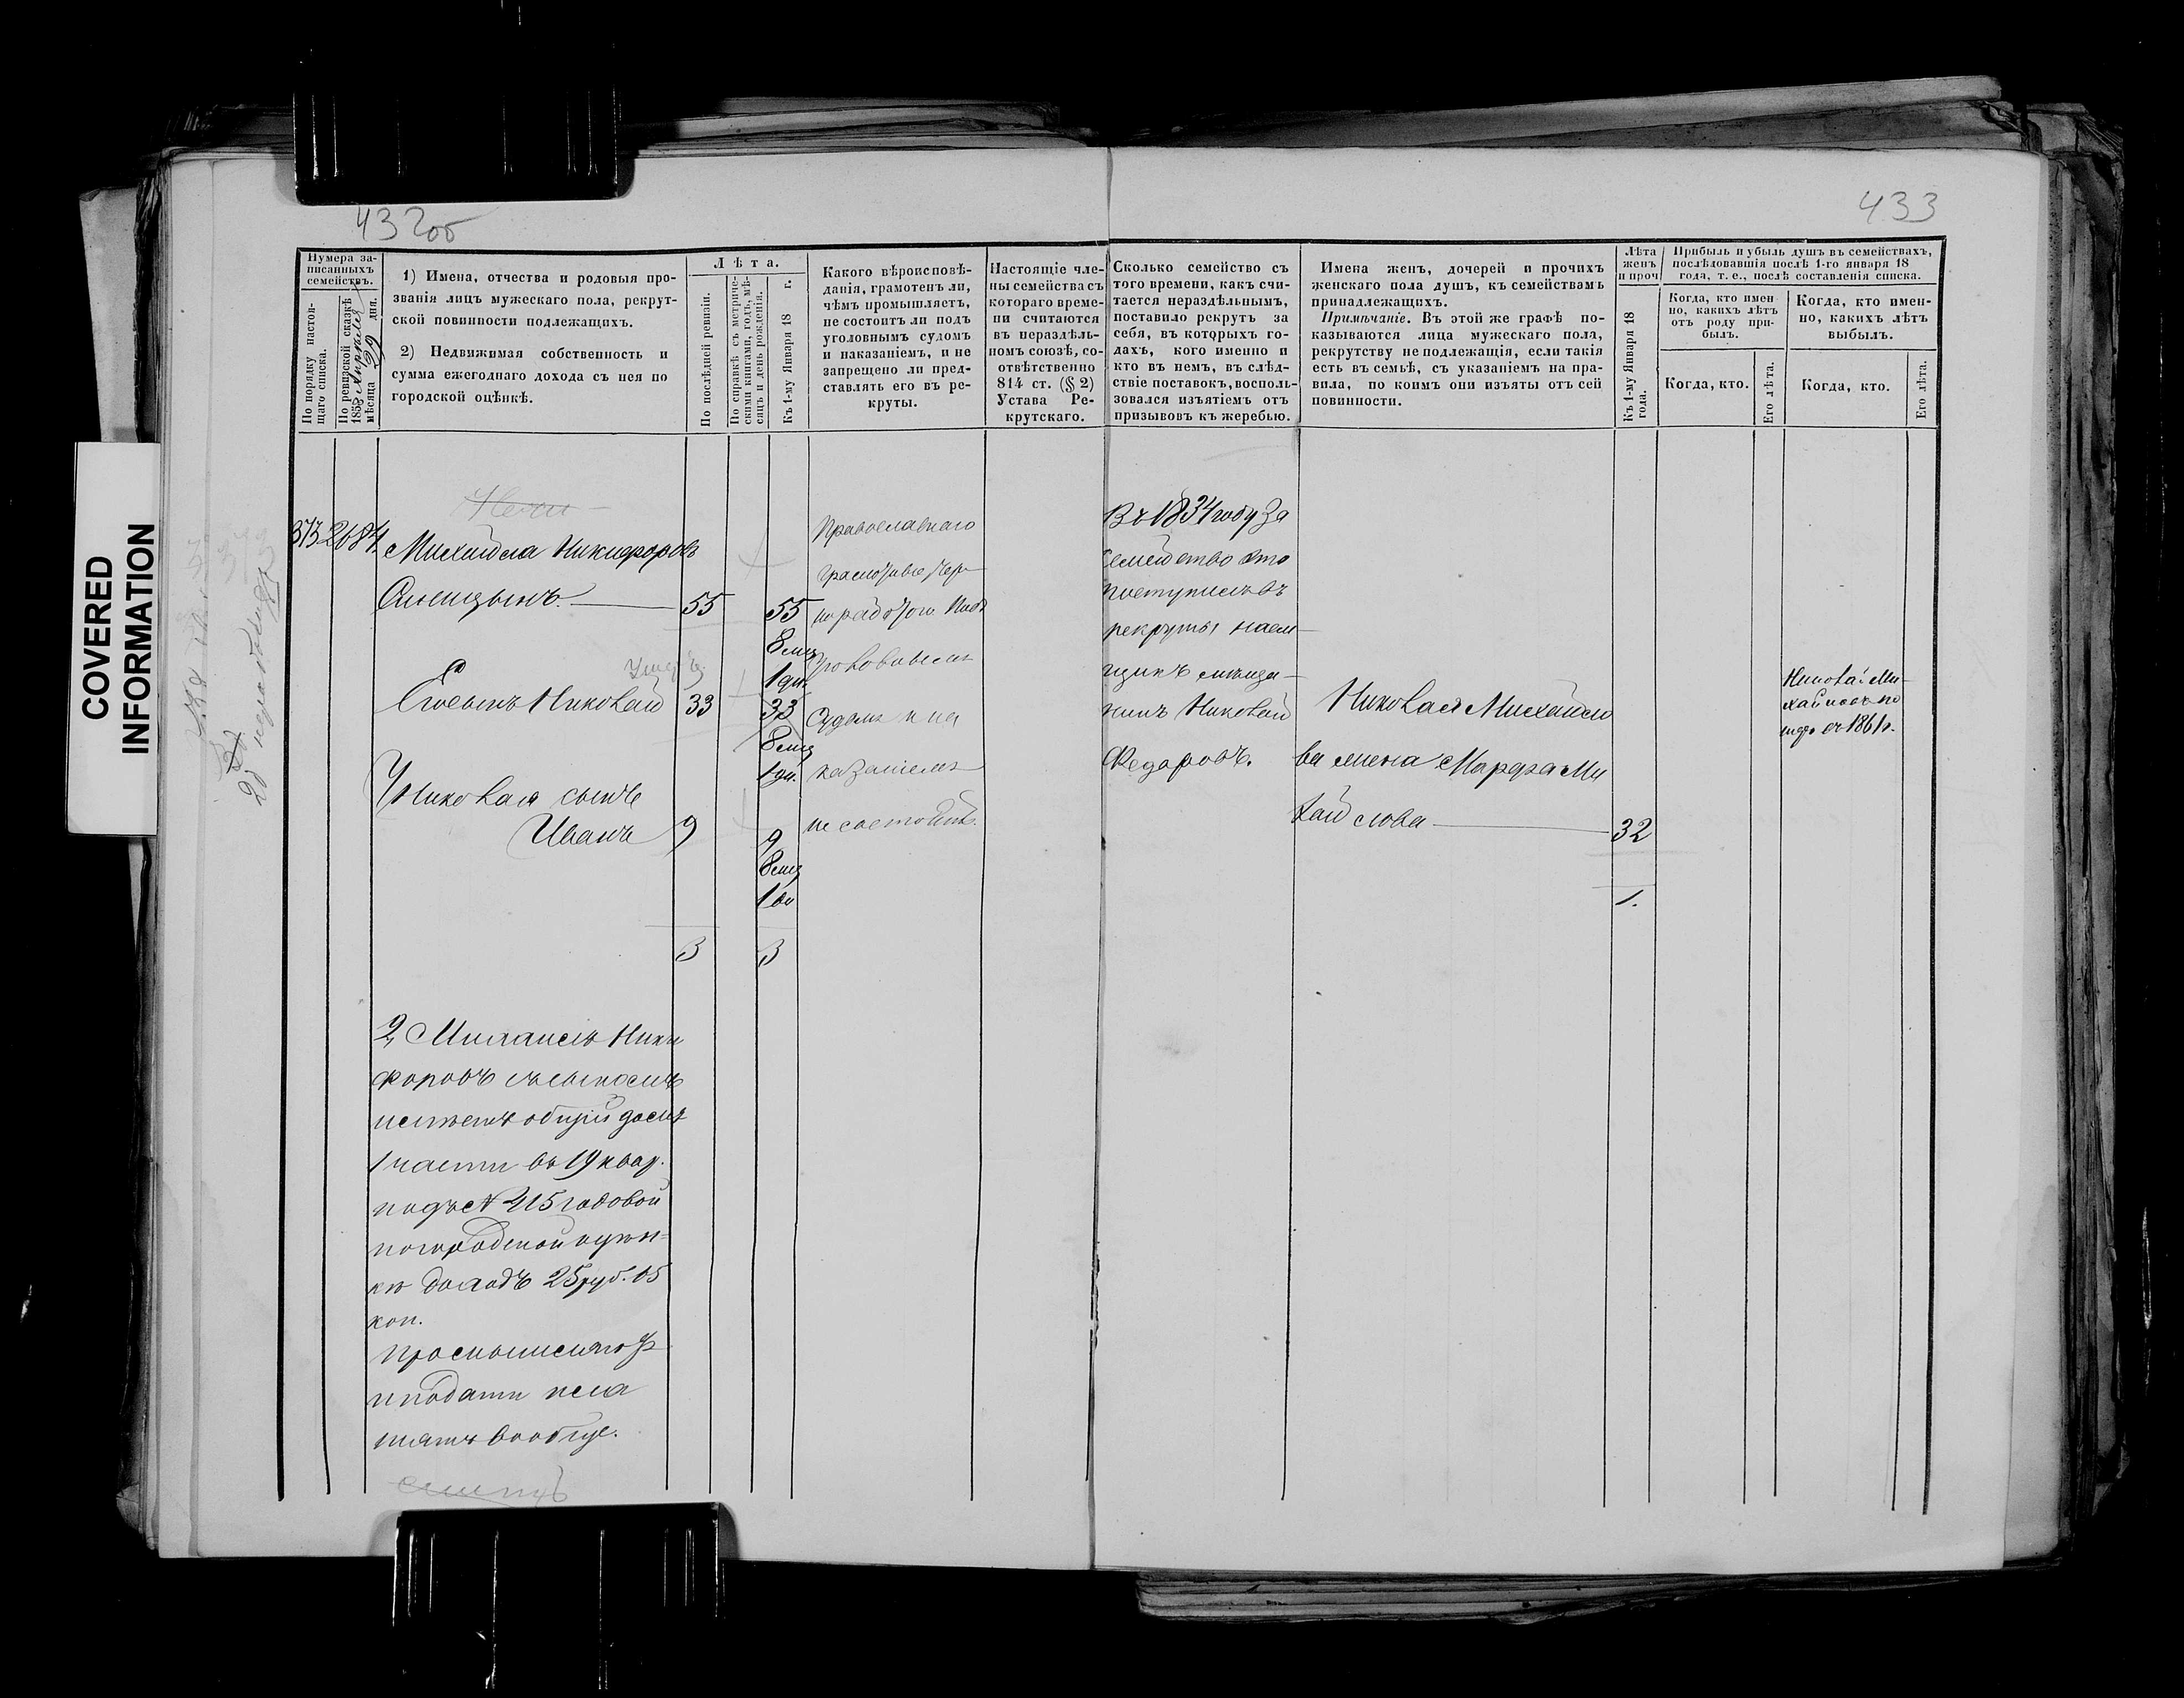 432об
433
COVERED
INFORMATION
Нумера за-
писанныхъ
семействъ.
По порядку настоя-
щаго списка.
По ревизской сказкѣ
1858 Апрѣля
мѣсяца 29 дня.
1) Имена, отчества и родовыя про-
званія лицъ мужескаго пола, рекрут-
ской повинности подлежащихъ.
2) Недвижимая собственность и
сумма ежегоднаго дохода съ нея по
городской оцѣнкѣ.
Лѣта.
По послѣдней ревизіи.
По справкѣ съ метриче-
скими книгами, годъ, мѣ-
сяцъ и день рожденія.
Къ 1-му Января 18 г.
Какого вѣроисповѣ-
данія, грамотенъ ли,
чѣмъ промышляетъ,
не состоитъ ли подъ
уголовнымъ судомъ
и наказаніемъ, и не
запрещено ли пред-
ставлять его въ ре-
круты.
Настоящіе чле-
ны семейства съ
котораго време-
ни считаются
въ нераздѣль-
номъ союзѣ, со-
отвѣтственно
814 ст. (§ 2)
Устава Ре-
крутскаго.
Сколько семейство съ
того времени, какъ счи-
тается нераздѣльнымъ,
поставило рекрутъ за
себя, въ которыхъ го-
дахъ, кого именно и
кто въ немъ, въ слѣд-
ствіе поставокъ, восполь-
зовался изъятіемъ отъ
призывовъ къ жеребью.
Имена женъ, дочерей и прочихъ
женскаго пола душъ, къ семействамъ
принадлежащихъ.
Примѣчаніе. Въ этой же графѣ по-
казываются лица мужескаго пола,
рекрутству не подлежащія, если такія
есть въ семьѣ, съ указаніемъ на пра-
вила, по коимъ они изъяты отъ сей
повинности.
Лѣта
женъ
и проч
Къ 1-му Января 18
года.
Прибыль и убыль душъ въ семействахъ,
послѣдовавшія послѣ 1-го января 18
года, т. е., послѣ составленія списка.
Когда, кто имен-
но, какихъ лѣтъ
отъ роду при-
былъ.
Когда, кто имен-
но, какихъ лѣтъ
выбылъ.
Когда, кто.
Его лѣта.
Когда, кто.
Его лѣта.
373 2684
Михайла Никифоровъ
55
55
8 мц
1 дн.
Его сынъ Николай 33
33
8 мц
1 дн.
У Николая сынъ
Иванъ 9
9
8 мц
3
3
Православнаго
судомъ и на
казаніемъ
не состоитъ.
Въ 1834 году За
семейство это
поступилъ въ
рекруты наем-
щикъ мѣща-
нинъ Николай
Федоровъ.
Николая Михайло
ва жена Марфа Ми
хайлова 32
1.
Никола: Ми-
хайловъ по
меръ въ 1861 г.
2, Михаилъ Ники
форовъ съ сыномъ
имѣетъ общій домъ
1 части въ 19 квар.
подъ № 215 годовой
по городской оцѣн-
кѣ доходъ 25 руб. 05
коп.
и подати пла
тятъ вообще.